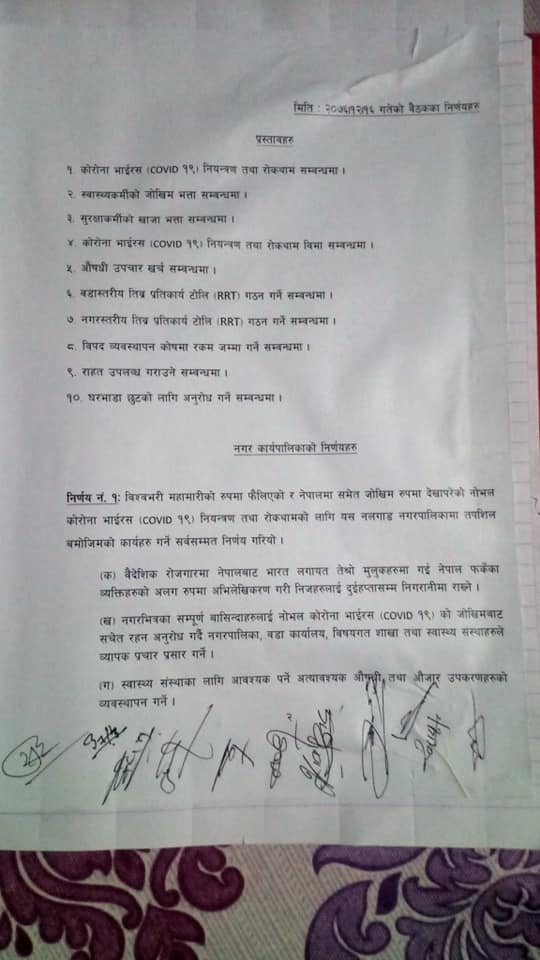 मिति : २०७६।१२।१६ गतेको बैठकका निर्णयहरु
प्रस्तावहरु
१. कोरोना भाईरस (COVID १९) नियन्त्रण तथा रोकथाम सम्बन्धमा ।
२. स्वास्थ्यकर्मीको जोखिम भत्ता सम्बन्धमा ।
३. सुरक्षाकर्मीको खाजा भत्ता सम्बन्धमा ।
४. कोरोना भाईरस (COVID १९) नियन्त्रण तथा रोकथाम विमा सम्बन्धमा ।
५. औषधी उपचार खर्च सम्बन्धमा ।
६. वडास्तरीय तिब्र प्रतिकार्य टोलि (RRT) गठन गर्ने सम्बन्धमा ।
७. नगरस्तरीय तिब्र प्रतिकार्य टोलि (RRT) गठन गर्ने सम्बन्धमा ।
८. विपद व्यवस्थापन कोषमा रकम जम्मा गर्ने सम्बन्धमा ।
९. राहत उपलब्ध गराउने सम्बन्धमा ।
१०. घरभाडा छुटको लागि अनुरोध गर्ने सम्बन्धमा ।
नगर कार्यपालिकाको निर्णयहरु
निर्णय नं. १: विश्वभरी महामारीको रुपमा फैलिएको र नेपालमा समेत जोखिम रुपमा देखापरेको नोभल
कोरोना भाईरस (COVID १९) नियन्त्रण तथा रोकथामको लागि यस नलगाड नगरपालिकामा तपशिल
बमोजिमको कार्यहरु गर्ने सर्वसम्मत निर्णय गरियो ।
(क) बैदेशिक रोजगारमा नेपालबाट भारत लगायत तेश्रो मुलुकहरुमा गई नेपाल फर्केका
व्यक्तिहरुको अलग रुपमा अभिलेखिकरण गरी निजहरुलाई दुईहप्तासम्म निगरानीमा राख्ने ।
(ख) नगरभित्रका सम्पूर्ण बासिन्दाहरुलाई नोभल कोरोना भाईरस (COVID १९) को जोखिमबाट
सचेत रहन अनुरोध गर्दै नगरपालिका, वडा कार्यालय, विषयगत शाखा तथा स्वास्थ्य संस्थाहरुले
व्यापक प्रचार प्रसार गर्ने ।
(ग) स्वास्थ्य संस्थाका लागि आवश्यक पर्ने अत्यावश्यक औषधी तथा औजार उपकरणहरुको
व्यवस्थापन गर्ने ।
२